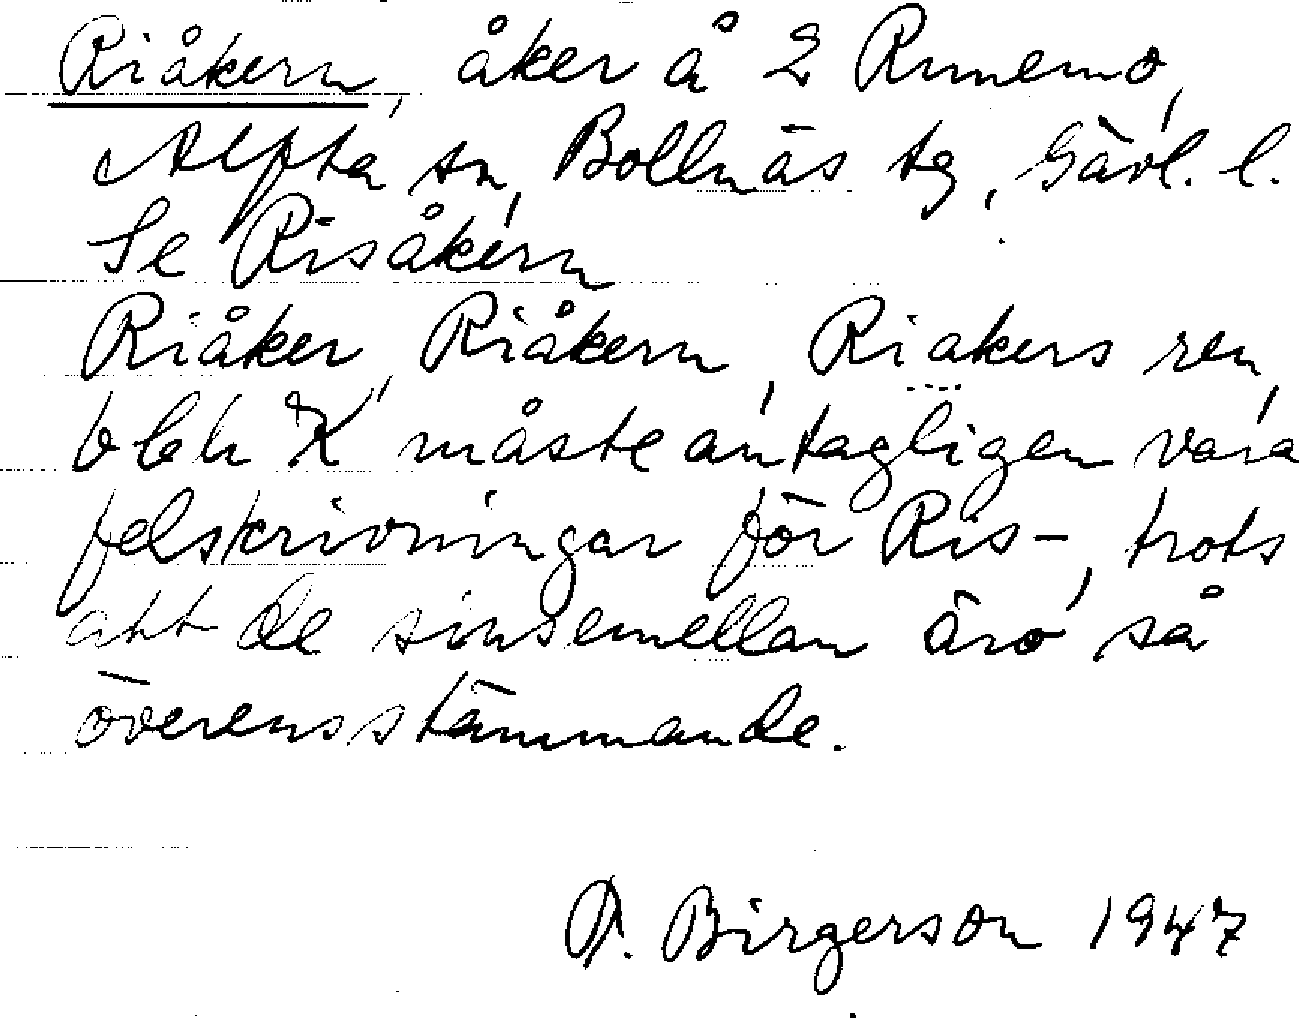 Riåkern, åker å 2 Runemo,
Alfta sn, Bollnäs tg, Gävl. l.
Se Risåkern
Riåker, Riåkern, Riakers ren,
måste antagligen vara
felskrivningar för Ris-, trots
att de sinsemellan äro så
överensstämmande.
Birgerson 1947